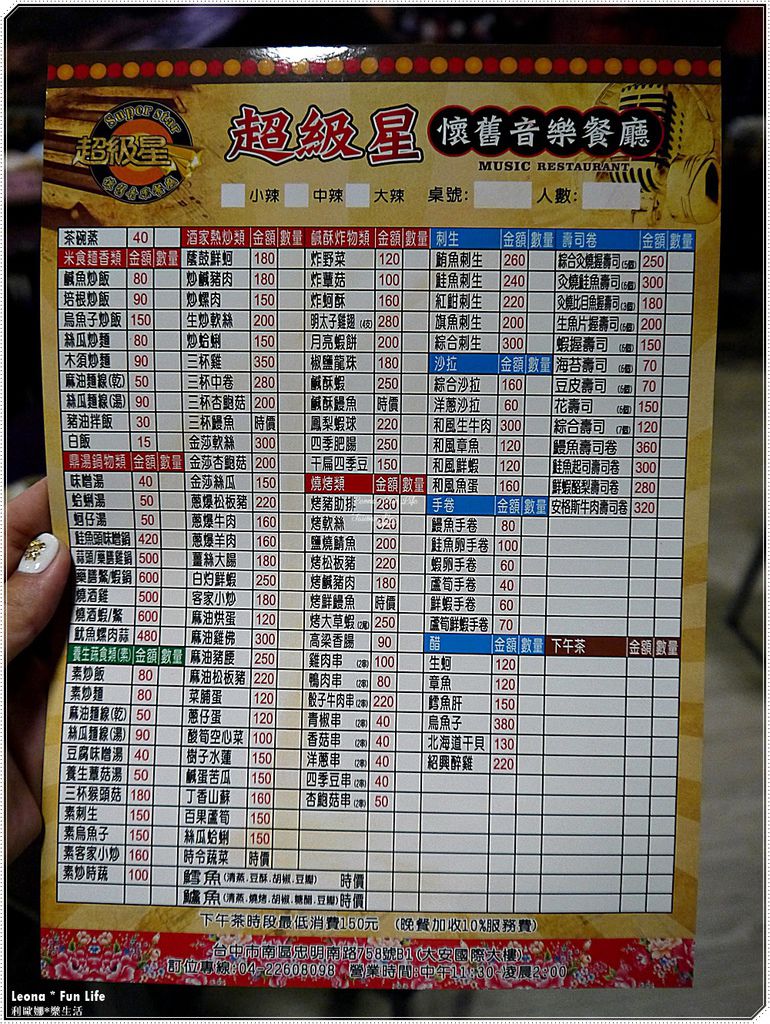 Super Star
超級星
超級星
懷舊音樂餐廳
MUSIC RESTAURANT
小辣 中辣 大辣 桌號: 人數:
茶碗蒸 40
米食麵香類 金額 數量
鹹魚炒飯 80
培根炒飯 90
烏魚子炒飯 150
絲瓜炒麵 80
木須炒麵 90
麻油麵線(乾) 50
絲瓜麵線(湯) 90
豬油拌飯 30
白飯 15
鼎湯鍋物類 金額 數量
味噌湯 40
蛤蜊湯 50
蚵仔湯 50
鮭魚頭味噌鍋 420
蒜頭/藥膳雞鍋 500
藥膳鱉/蝦鍋 600
燒酒雞 500
燒酒蝦/鱉 600
魷魚螺肉蒜 480
養生蔬食類(素) 金額 數量
素炒飯 80
素炒麵 80
麻油麵線(乾) 50
絲瓜麵線(湯) 90
豆腐味噌湯 40
養生蕈菇湯 50
三杯猴頭菇 180
素刺生 150
素烏魚子 150
素客家小炒 160
素炒時蔬 100
酒家熱炒類 金額 數量
蔭鼓鮮蚵 180
炒鹹豬肉 180
炒螺肉 150
生炒軟絲 200
炒蛤蜊 150
三杯雞 350
三杯中卷 280
三杯杏鮑菇 200
三杯鰻魚 時價
金莎軟絲 300
金莎杏鮑菇 200
金莎絲瓜 150
蔥爆松板豬 220
蔥爆牛肉 160
蔥爆羊肉 160
薑絲大腸 180
白灼鮮蝦 250
客家小炒 180
麻油烘蛋 120
麻油雞佛 300
麻油豬腰 250
麻油松板豬 220
菜脯蛋 120
蔥仔蛋 120
酸筍空心菜 100
樹子水蓮 150
鹹蛋苦瓜 150
丁香山蘇 160
百果蘆筍 150
絲瓜蛤蜊 150
時令蔬菜 時價
鱈魚(清蒸.豆酥.胡椒.豆瓣) 時價
鱸魚(清蒸.燒烤.胡椒.糖醋.豆瓣) 時價
鹹酥炸物類 金額 數量
炸野菜 120
炸蕈菇 100
炸蚵酥 160
明太子雞翅(4支) 280
月亮蝦餅 200
椒鹽龍珠 180
鹹酥蝦 250
鹹酥鰻魚 時價
鳳梨蝦球 220
四季肥腸 250
干扁四季豆 150
燒烤類 金額 數量
烤豬肋排 280
烤軟絲 320
鹽燒鯖魚 200
烤松板豬 220
烤鹹豬肉 180
烤鮮鰻魚 時價
烤大草蝦(2尾) 250
高梁香腸 90
雞肉串(2串) 100
鴨肉串(2串) 80
骰子牛肉串(2串) 220
青椒串(2串) 40
香菇串(2串) 40
洋蔥串(2串) 40
四季豆串(2串) 40
杏鮑菇串(2串) 50
刺生 金額 數量
鮪魚刺生 260
鮭魚刺生 240
紅魽刺生 220
旗魚刺生 200
綜合刺生 300
沙拉 金額 數量
綜合沙拉 160
洋蔥沙拉 60
和風生牛肉 300
和風章魚 120
和風鮮蝦 120
和風魚蛋 160
手卷 金額 數量
鰻魚手卷 80
鮭魚卵手卷 100
蝦卵手卷 60
蘆筍手卷 40
鮮蝦手卷 60
蘆筍鮮蝦手卷 70
醋 金額 數量
生蚵 120
章魚 120
鱈魚肝 150
烏魚子 380
北海道干貝 130
紹興醉雞 220
壽司卷 金額 數量
綜合炙燒握壽司(5個) 250
炙燒鮭魚壽司(6個) 300
炙燒比目魚握壽司(3個) 180
生魚片握壽司(6個) 200
蝦握壽司(6個) 150
海苔壽司(6個) 70
豆皮壽司(6個) 70
花壽司(6個) 150
綜合壽司(7個) 120
鰻魚壽司卷 360
鮭魚起司壽司卷 300
鮮蝦酪梨壽司卷 280
安格斯牛肉壽司卷 320
下午茶 金額 數量
下午茶時段最低消費150元 (晚餐加收10%服務費)
台中市南區忠明南路758號B1(大安國際大樓)
訂位專線:04-22608098 營業時間:中午11:30-凌晨2:00
Leona * Fun Life
利歐娜*樂生活